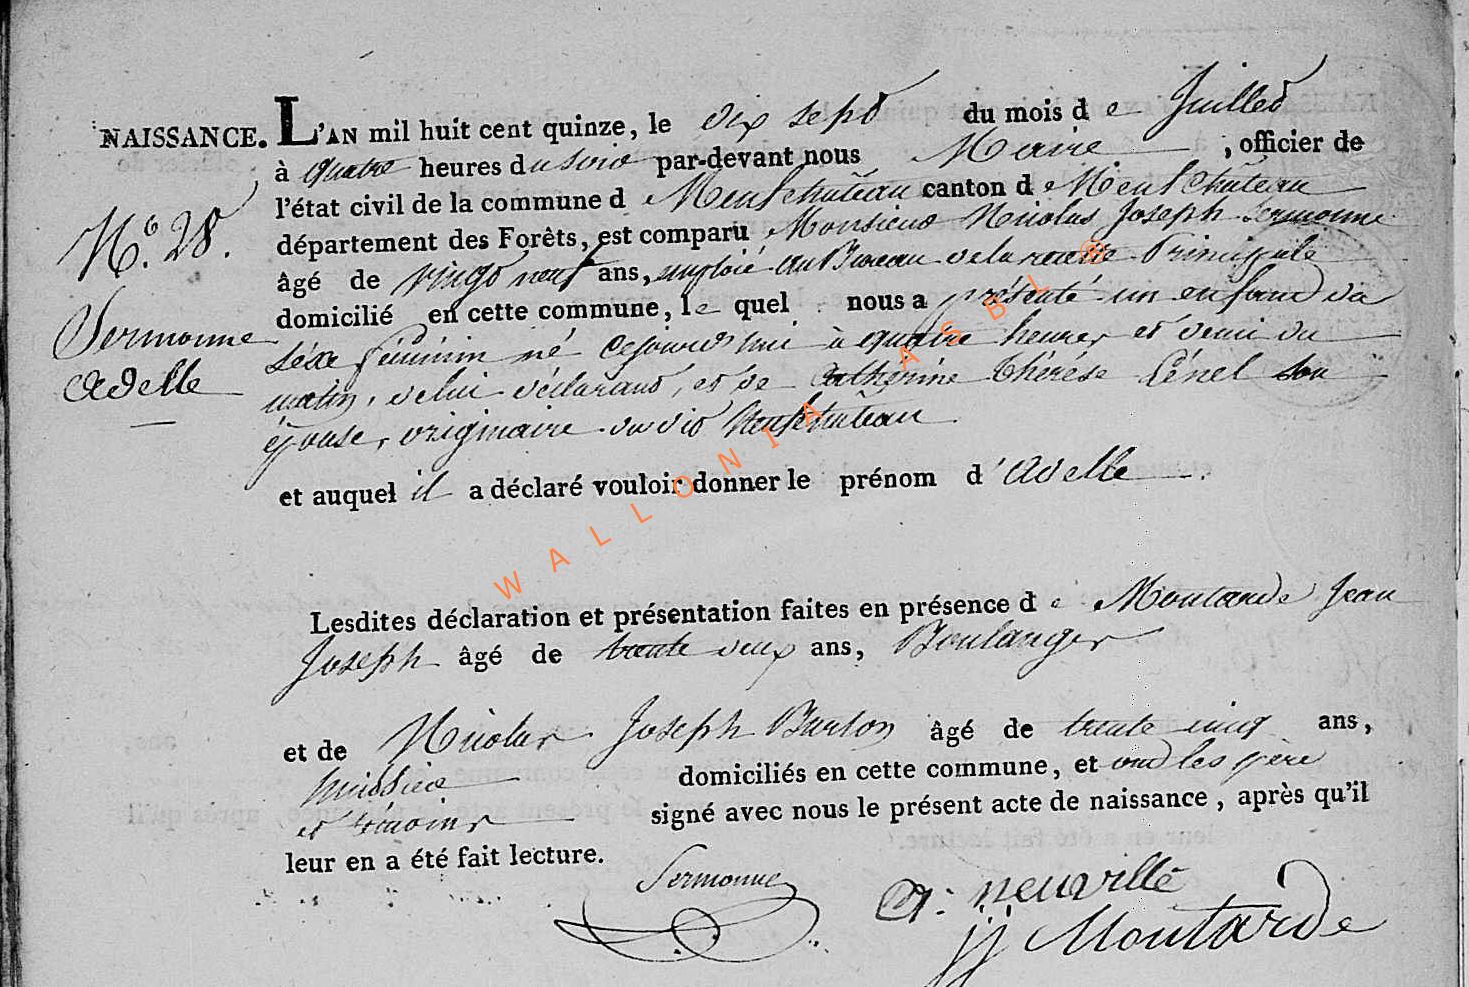 NAISSANCE. L'AN mil huit cent quinze, le dix sept du mois de Juillet
à quatre heures du soir par-devant nous Maire, officier de
l'état civil de la commune de Neufchâteau canton de Neufchâteau
département des Forêts, est comparu Monsieur Nicolas Joseph Sermonne
âgé de vingt neuf ans, emploié au Bureau de la recette Principale
domicilié en cette commune, le quel nous a présenté un enfant du
séxe féminin né cejourd'hui à quatre heures et demi du
matin, de lui déclarant, et de Catherine Thérése Lénel son
épouse, originaire dudit Neufchâteau
et auquel il a déclaré vouloir donner le prénom d'Adelle.
N.° 28.
Sermonne
Adelle
Lesdites déclaration et présentation faites en présence de Moutarde Jean
Joseph âgé de trente deux ans, Boulanger
et de Nicolas Joseph Burton âgé de trente cinq ans,
huissier domiciliés en cette commune, et ont les père
et témoins signé avec nous le présent acte de naissance, après qu'il
leur en a été fait lecture.
Sermonne
neuville
jj Moutarde
WALLONIA ASBL ®